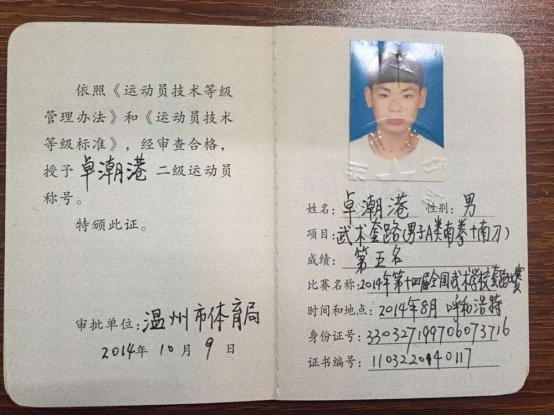 依照《运动员技术等级
管理办法》和《运动员技术
等级标准》，经审查合格，
授予 卓潮港 二级运动员
称号。
特颁此证。
审批单位：温州市体育局
2014年 10月 9日
姓名：卓潮港 性别：男
项目：武术套路(男子A类南拳+南刀)
成绩：第五名
比赛名称：2014年第十四届全国武术学校套路比赛
时间和地点：2014年8月 呼和浩特
身份证号：330327199706073716
证书编号：1103220140117